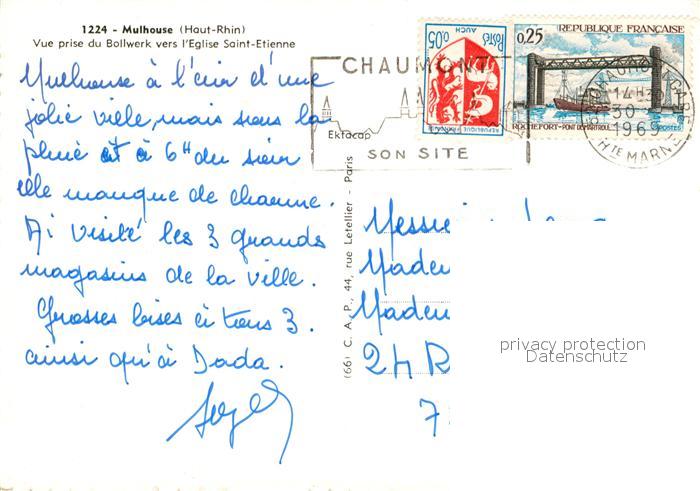 1224 - Mulhouse (Haut-Rhin)
Vue prise du Bollwerk vers l'Eglise Saint-Etienne
Mulhouse à l'air d'une
jolie ville, mais sous la
pluie et à 6H du soir
elle manque de charme.
Ai visité les 3 grands
magasins de la ville.
Grosses bises à tous 3.
ainsi qu'à Dada.
CHAUMONT
Ektacap
SON SITE
POSTES
AUCH
0,05
REPUBLIQUE FRANÇAISE
REPUBLIQUE FRANÇAISE
0,25
ROCHEFORT - PONT DE MARTROU
POSTES
CHAUMONT
14H30
30
1969
HTE MARNE
(66) C. A. P., 44, rue Letellier - Paris
24 R
7
privacy protection
Datenschutz